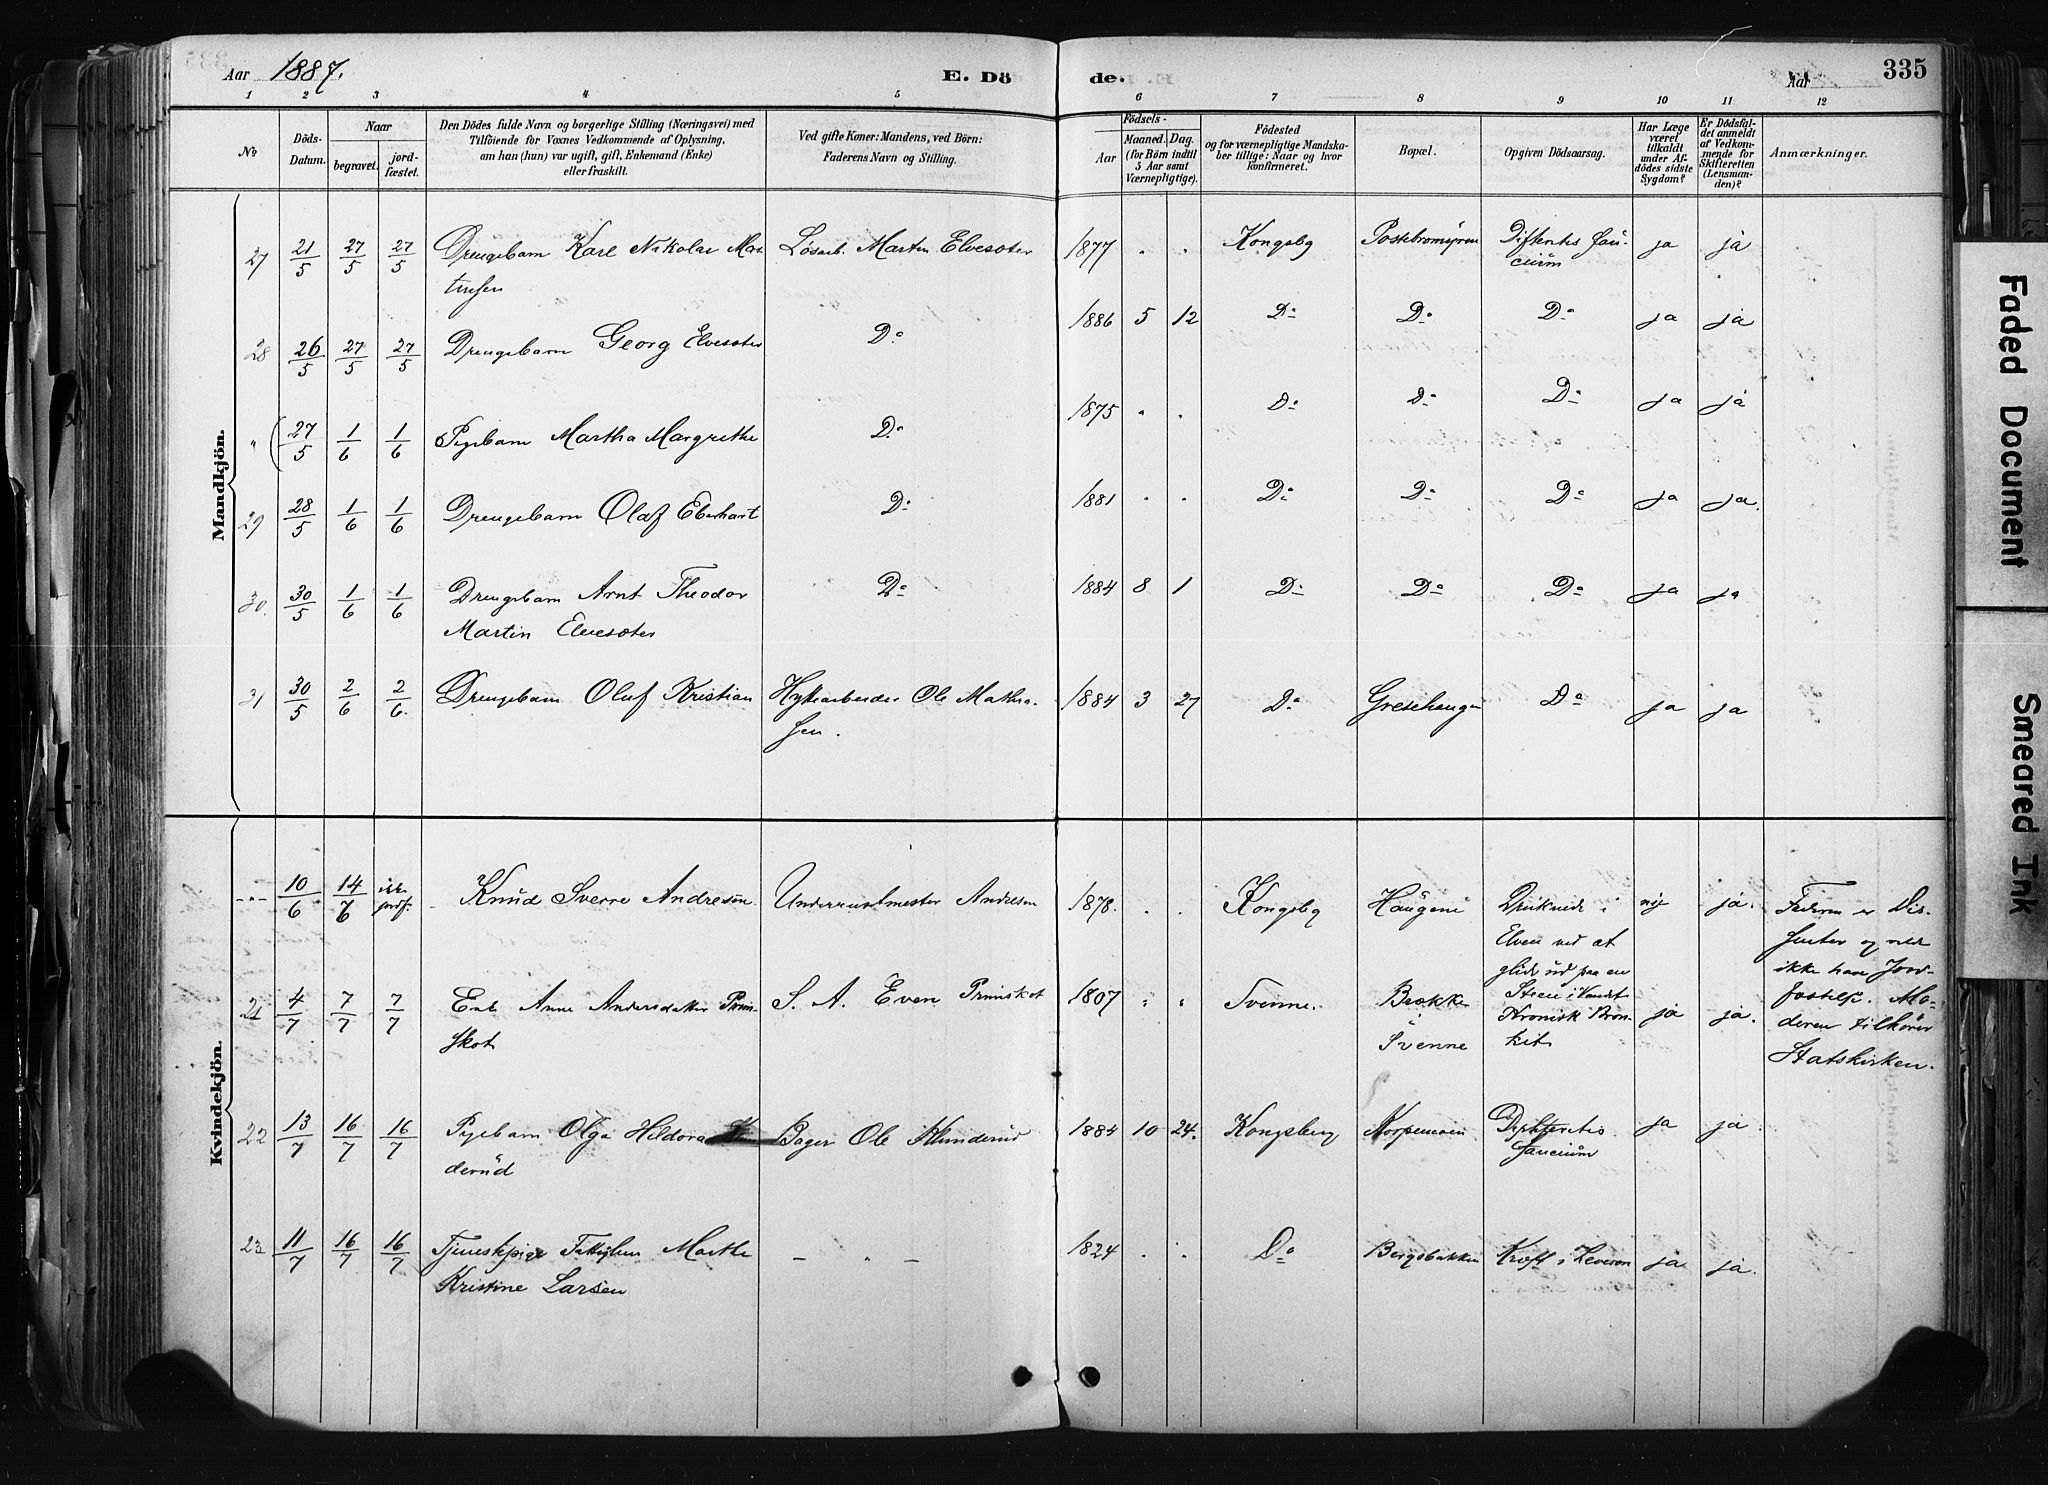 Aar 1887. E. Dö de. Aar 335
1 2 3 4 5 6 7 8 9 10 11 12
No
Döds-Datum.
Naar
begravet.
jord-fæstet.
Den Dödes fulde Navn og borgerlige Stilling (Næringsvei) med
Tilföiende for Voxnes Vedkommende af Oplysning,
om han (hun) var ugift, gift, Enkemand (Enke)
eller fraskilt.
Ved gifte Koner: Mandens, ved Börn:
Faderens Navn og Stilling.
Födsels-
Aar
Maaned. Dag.
(for Börn indtil
5 Aar samt
Værnepligtige).
Födested
og for værnepligtige Mandska-
ber tillige: Naar og hvor
konfirmeret.
Bopæl.
Opgiven Dödsaarsag.
Har Læge
været
tilkaldt
under Af-
dödes sidste
Sygdom?
Er Dödsfal-
det anmeldt
af Vedkom-
mende for
Skifteretten
(Lensman-
den)?
Anmærkninger.
Mandkjön.
27 21/5 27/5 27/5 Drengebarn Karl Nikolai Mar- Løsarb. Martin Elvesæter 1877 " " Kongsbg Diftertis fau- ja ja
tinsen cium
28 26/5 27/5 27/5 Drengebarn Georg Elvesæter Do 1886 5 12 Do Do Do ja ja
" ( 27/5 1/6 1/6 Pigebarn Martha Margrethe Do 1875 " " Do Do Do ja ja
29 28/5 1/6 1/6 Drengebarn Olaf Eberhart Do 1881 " " Do Do Do ja ja.
30. 30/5 1/6 1/6 Drengebarn Arnt Theodor Do 1884 8 1 Do Do Do ja ja
Martin Elvesæter
31 30/5 2/6 2/6. Drengebarn Oluf Kristian Hyttearbeider Ole Mathi- 1884 3 27 Do Do ja ja
sen.
Kvindekjön.
-"- 10/6 14/6 ikke jordf. Knud Sverre Andresen. Andresen 1878. " " Kongsbg Haugene Druknede i nei ja. Faderen er Dis-
Elven ved at senter og vilde
glide ud paa en ikke have Jord-
Steen i Vandet fæstelse. Mo-
deren tilhører
Statskirken.
21 4/7 7/7 7/7 Enke Anne Andersdatter S. A. Even 1807 " " Svenne. Brække Kronisk Bron- ja ja.
skot i Svenne kit
22 13/7 16/7 16/7 Pigebarn Olga Hildora Bager Ole Klunderud 1884 10 24. Kongsberg Diphteritis ja ja.
derud faucium
23 11/7 16/7 16/7 Tjenestepige Fattiglem Marthe - " - 1824 " " Do Bergsbakken Kræft i Leveren ja. ja.
Kristine Larsen
Faded Document
Smeared Ink